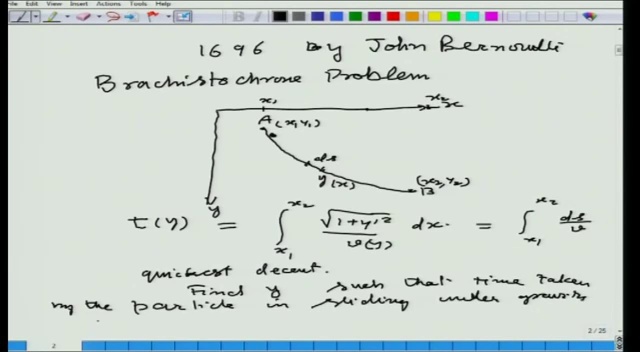 File Edit View Insert Actions Tools Help
1696 By John Bernoulli
Brachistochrone Problem
x₁ x₂ x
A (x₁, y₁)
ds
y(x) (x₂, y₂)
B
y
t(y) = ∫_{x₁}^{x₂} √(1+y'²)/v(y) dx. = ∫_{x₁}^{x₂} ds/v
quickest decent.
Find y such that time taken
by the particle in sliding under gravity
2 / 25
2